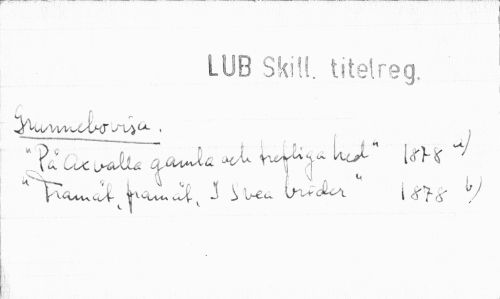 LUB Skill. titelreg.
Grunnebovisa.
"På Axvalla gamla och trefliga hed" 1878 a)
"Framåt, framåt, I Svea bröder" 1878 b)